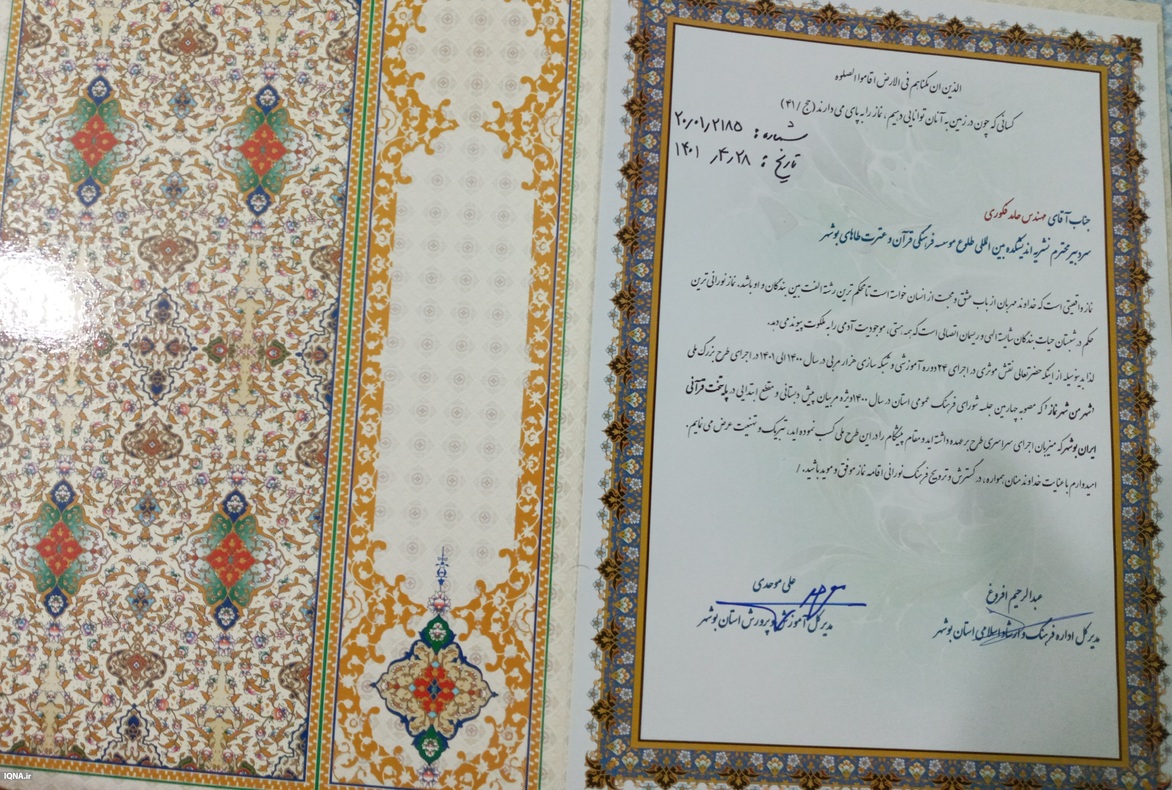 الذین ان مکناهم فی الارض اقاموا الصلوه
کسانی که چون در زمین به آنان توانایی دهیم، نماز را به پای می دارند (حج / ۴۱)
شماره: ۲۰٫۰۱٫۲۱۸۵
تاریخ: ۱۴۰۱٫۴٫۲۸
جناب آقای مهندس حامد فکوری
سردبیر محترم نشریه اندیشکده بین المللی طلوع موسسه فرهنگی قرآن و عترت طاهای بوشهر
نماز واقعیتی است که خداوند مهربان از باب عشق و محبت از انسان خواسته است تا محکم ترین رشته الفت بین بندگان و او باشد. نماز نورانی ترین
حکم در شبستان حیات بندگان شایسته الهی و ریسمان اتصالی است که همه هستی، موجودیت آدمی را به ملکوت پیوند می دهد.
لذا بدینوسیله از اینکه حضرتعالی نقش موثری در اجرای ۲۴ دوره آموزشی و شبکه سازی هزار مربی در سال ۱۴۰۰ الی ۱۴۰۱ در اجرای طرح بزرگ ملی
"شهر من شهر نماز" که مصوبه چهارمین جلسه شورای فرهنگ عمومی استان در سال ۱۴۰۰ ویژه مربیان پیش دبستانی و مقطع ابتدایی در پایتخت قرآنی
ایران بوشهر که میزبان اجرای سراسری طرح بر عهده داشته اید و مقام پیشگام را در این طرح ملی کسب نموده اید، تبریک و تهنیت عرض می نمایم.
امیدوارم با عنایت خداوند منان همواره، در گسترش و ترویج فرهنگ نورانی اقامه نماز موفق و موید باشید. /
عبدالرحیم افروغ
مدیر کل اداره فرهنگ و ارشاد اسلامی استان بوشهر
علی موحدی
مدیر کل آموزش و پرورش استان بوشهر
IQNA.ir